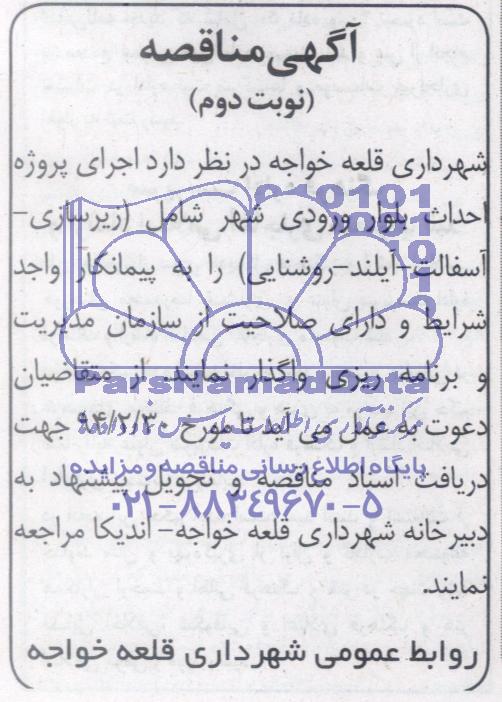 آگهی مناقصه
(نوبت دوم)
شهرداری قلعه خواجه در نظر دارد اجرای پروژه
احداث بلوار ورودی شهر شامل (زیرسازی-
آسفالت-آیلند-روشنایی) را به پیمانکار واجد
شرایط و دارای صلاحیت از سازمان مدیریت
و برنامه ریزی واگذار نماید. از متقاضیان
دعوت به عمل می آید تا مورخ ۹۶/۲/۳۰ جهت
دریافت اسناد مناقصه و تحویل پیشنهاد به
دبیرخانه شهرداری قلعه خواجه- اندیکا مراجعه
نمایند.
روابط عمومی شهرداری قلعه خواجه
ParsNamadData
پایگاه اطلاع رسانی مناقصه و مزایده
۰۲۱-۸۸۳۴۹۶۷۰-۵